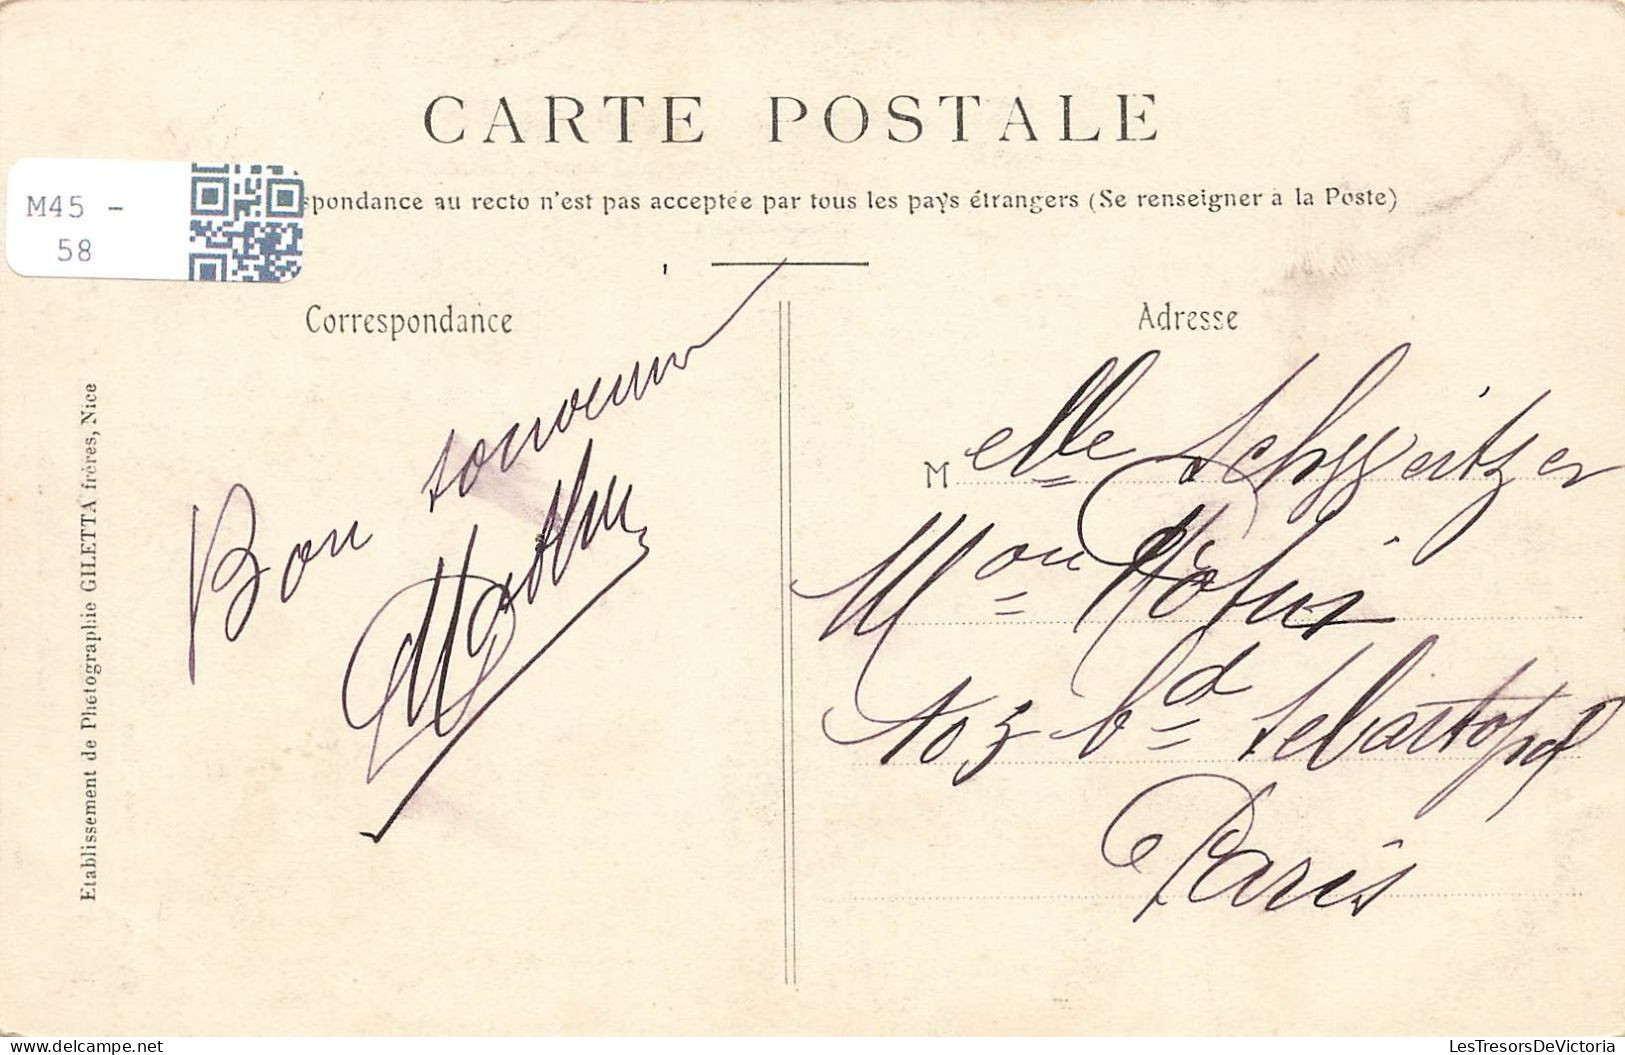 CARTE POSTALE
M45 -
58
spondance au recto n'est pas acceptée par tous les pays étrangers (Se renseigner à la Poste)
Correspondance
Bon souvenir
Adresse
Melle Schweitzer
Mon Robin
103 bd Sebastopol
Paris
Etablissement de Photographie GILETTA frères, Nice
LesTresorsDeVictoria
https://www.delcampe.net